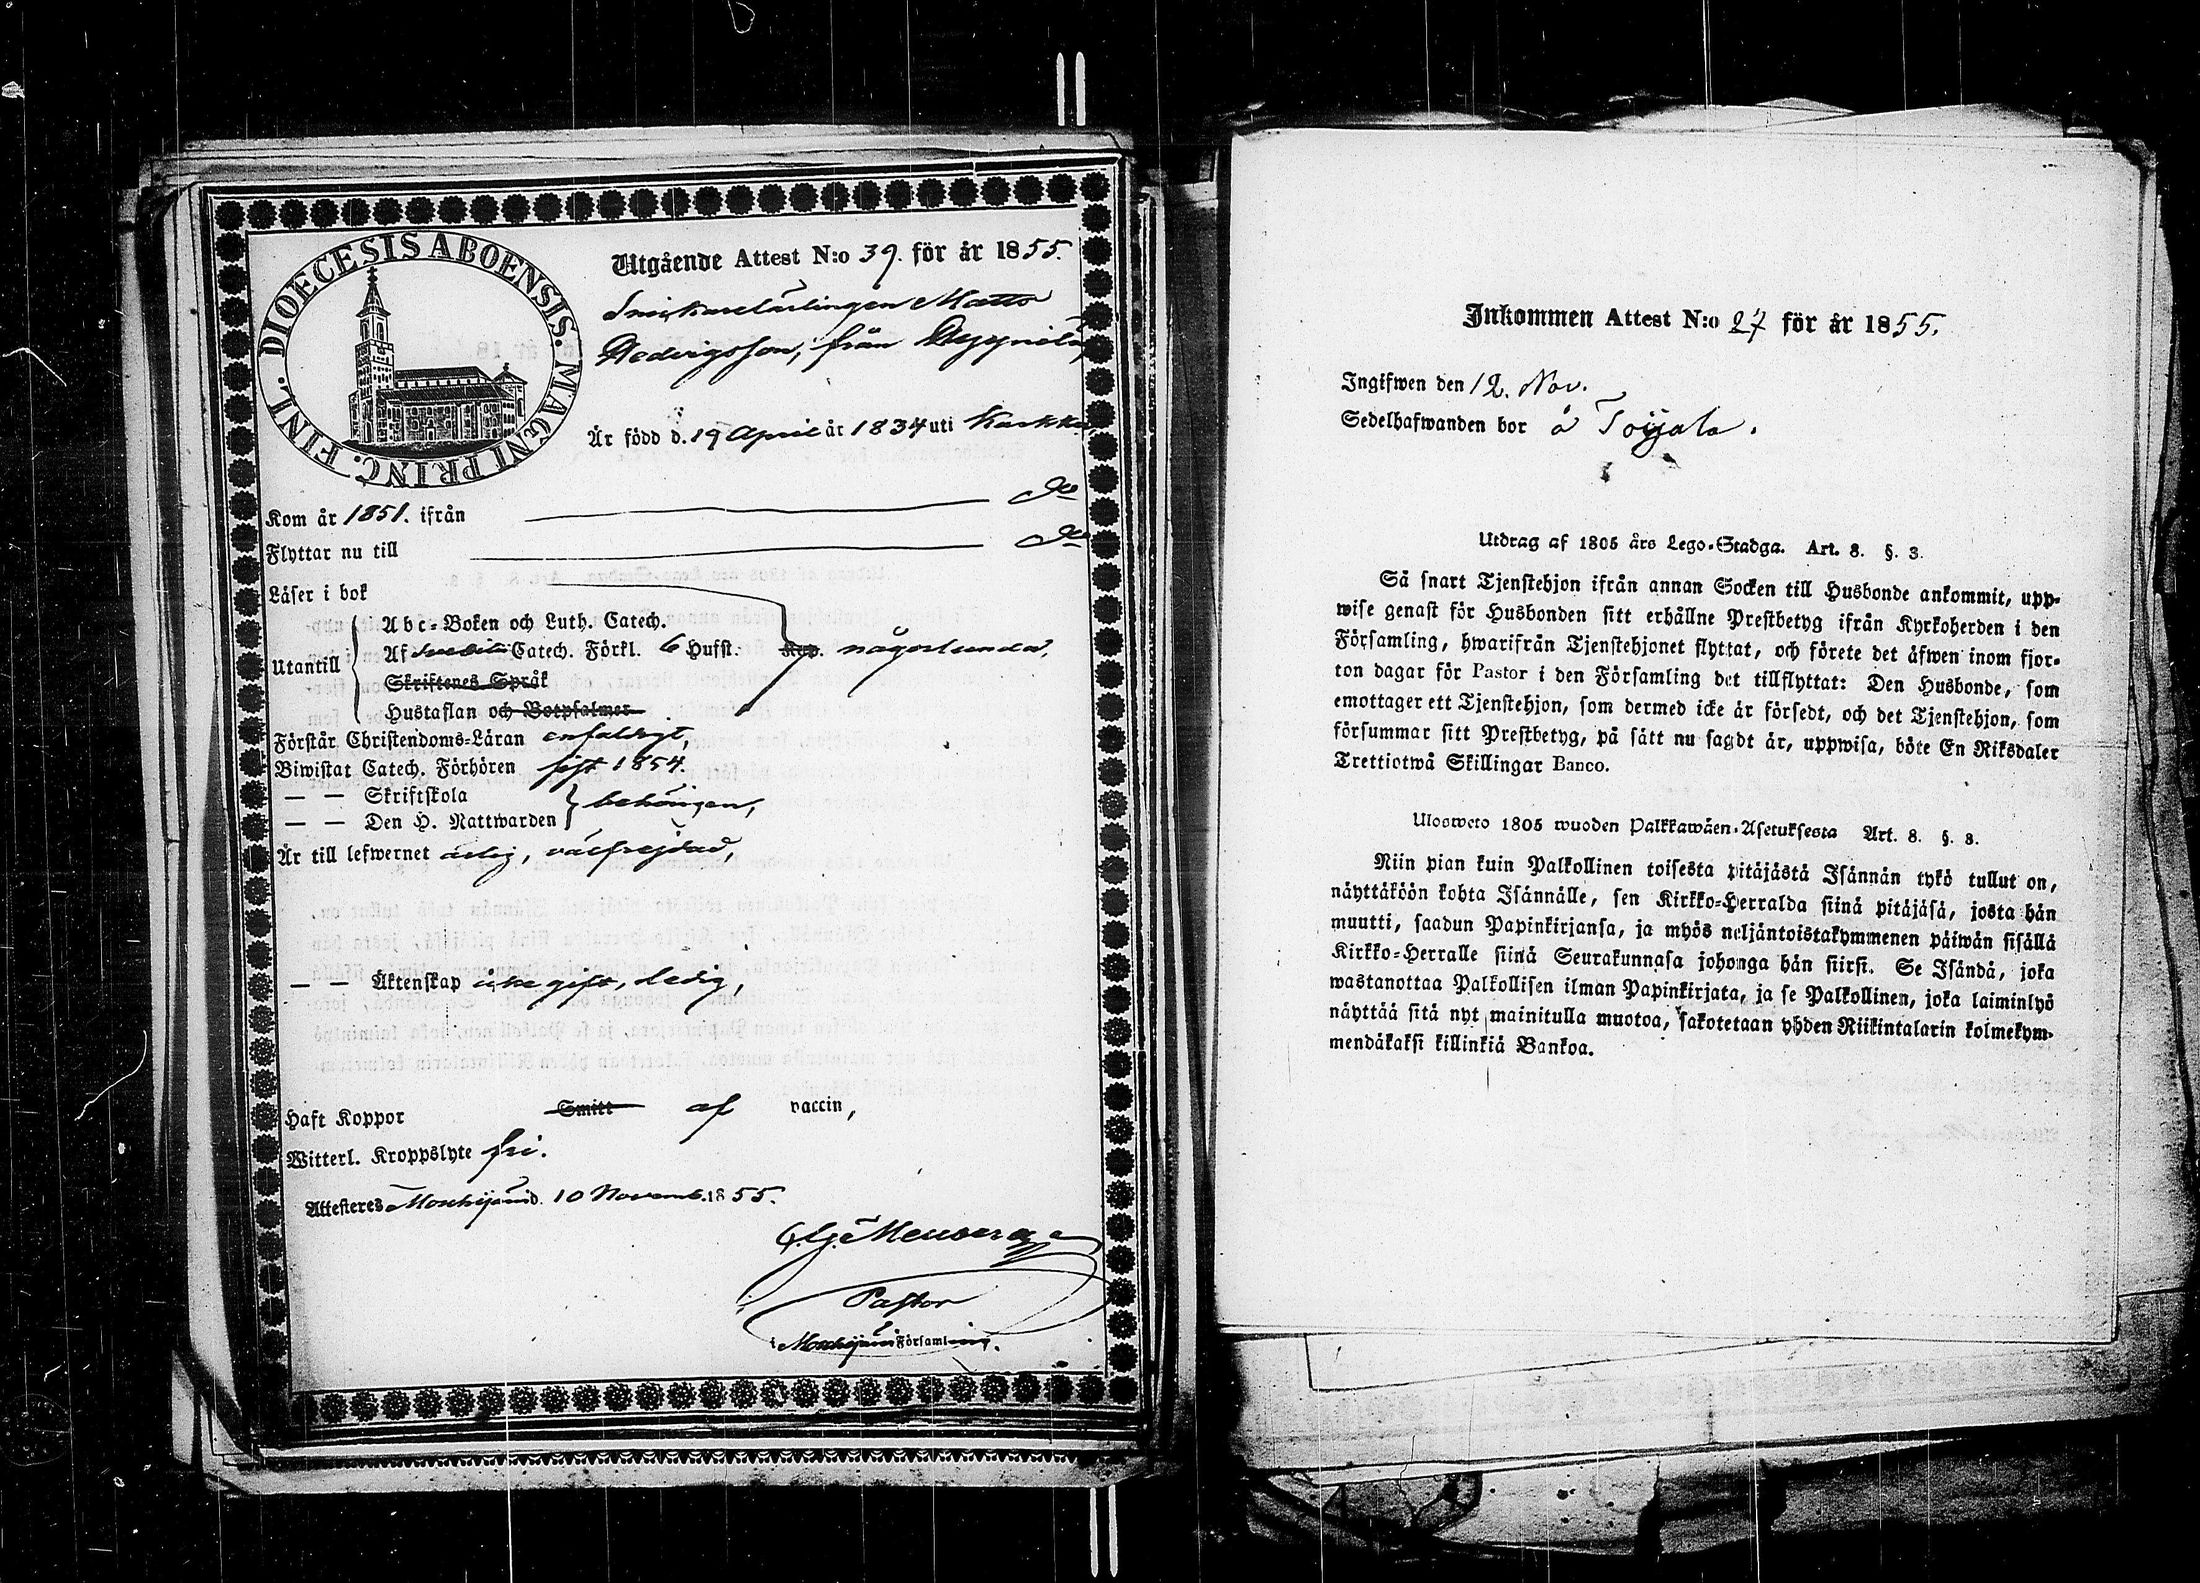 DIOECESIS ABOENSIS. MAGNI PRINC. FINL.
Utgående Attest N:o 39. för år 1855.
Snickarelärlingen Matts
Hedvigsson, från
Är född d. 19 April år 1834 uti Karkku
Kom år 1851. ifrån do
Flyttar nu till do
Läser i bok
Utantill
Abc-Boken och Luth. Catech.
Af Svebilii Catech. Förkl. 6 Hufst. Kap. någorlunda,
Skriftenes Språk
Hustaflan och Botpsalmer
Förstår Christendoms-Läran enfaldigt,
Biwistat Catech. Förhören sist 1854.
— — Skriftskola
— — Den H. Nattwarden behörigen,
Är till lefwernet ärlig, välfrejdad,
— — Äktenskap icke gift, ledig,
Haft Koppor Smitt af vaccin,
Witterl. Kroppslyte fri.
Attesteres Mouhijärvi d. 10 Novemb. 1855.
Pastor
i Mouhijärvi Församling.
Inkommen Attest N:o 27 för år 1855.
Ingifwen den 12. Nov.
Sedelhafwanden bor å Toijala.
Utdrag af 1805 års Lego-Stadga. Art. 8. §. 3.
Så snart Tjenstehjon ifrån annan Socken till Husbonde ankommit, upp-
wise genast för Husbonden sitt erhållne Prestbetyg ifrån Kyrkoherden i den
Församling, hwarifrån Tjenstehjonet flyttat, och förete det äfwen inom fjor-
ton dagar för Pastor i den Församling det tillflyttat: Den Husbonde, som
emottager ett Tjenstehjon, som dermed icke är försedt, och det Tjenstehjon, som
försummar sitt Prestbetyg, på sätt nu sagdt är, uppwisa, böte En Riksdaler
Trettiotwå Skillingar Banco.
Ulosweto 1805 wuoden Palkkawäen-Asetuksesta Art. 8. §. 3.
Niin pian kuin Palkollinen toisesta pitäjästä Isännän tykö tullut on,
näyttäköön kohta Isännälle, sen Kirkko-Herralda siinä pitäjäsä, josta hän
muutti, saadun Papinkirjansa, ja myös neljäntoistakymmenen päiwän sisällä
Kirkko-Herralle siinä Seurakunnasa johonga hän siirsi. Se Isändä, joka
wastanottaa Palkollisen ilman Papinkirjata, ja se Palkollinen, joka laiminlyö
näyttää sitä nyt mainitulla muotoa, sakotetaan yhden Riikintalarin kolmekym-
mendäkaksi killinkiä Bankoa.